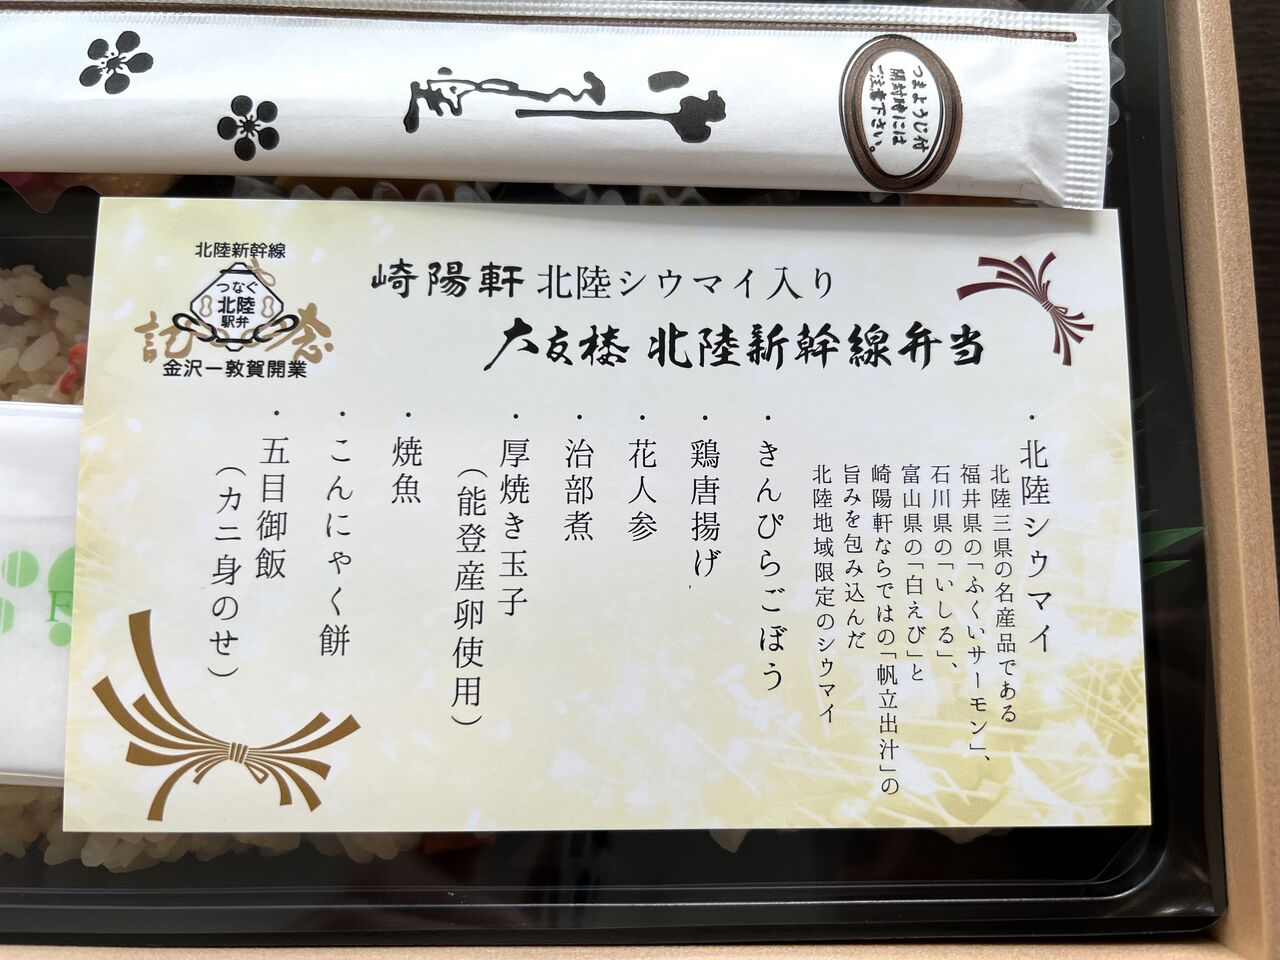 つまようじ付
開封時には
ご注意下さい。
北陸新幹線
つなぐ
北陸
駅弁
記念
金沢ー敦賀開業
崎陽軒 北陸シウマイ入り
大友楼 北陸新幹線弁当
・北陸シウマイ
北陸三県の名産品である
福井県の「ふくいサーモン」、
石川県の「いしる」、
富山県の「白えび」と
崎陽軒ならではの「帆立出汁」の
旨みを包み込んだ
北陸地域限定のシウマイ
・きんぴらごぼう
・鶏唐揚げ
・花人参
・治部煮
・厚焼き玉子
（能登産卵使用）
・焼魚
・こんにゃく餅
・五目御飯
（カニ身のせ）